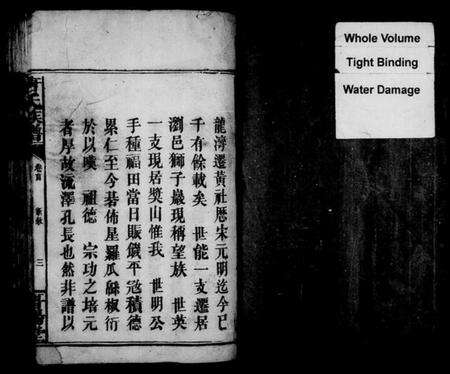 龍灣遷黃社歷宋元明迄今已
千有餘載矣　世能一支遷居
瀏邑獅子巖現稱望族　世英
一支現居獎山惟我　世明公
手種福田當日賑饑平寇積德
累仁至今碁佈星羅瓜緜椒衍
於以嘆　祖德　宗功之培元
者厚故流澤孔長也然非譜以
卷首
三
Whole Volume
Tight Binding
Water Damage